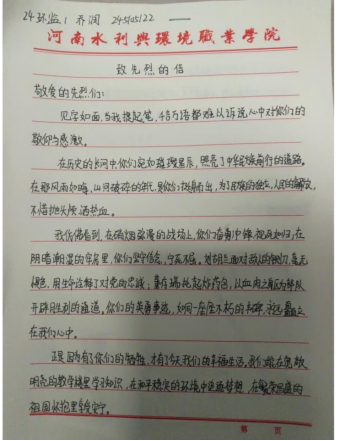 24环监1 乔润 245105122
河南水利與環境職業學院
致先烈的信
敬爱的先烈们:
见字如面,当我提起笔,千言万语都难以诉说心中对你们的
敬仰与感激。
在历史的长河中你们宛如璀璨星辰,照亮了中华民族前行的道路。
在那风雨如晦,山河破碎的年代,是你们挺身而出,为了民族的独立,人民的解放,
不惜抛头颅洒热血。
我仿佛看到,在硝烟弥漫的战场上,你们奋勇冲锋,视死如归;在
阴暗潮湿的牢房里,你们坚守信念,宁死不屈。刘胡兰面对敌人的铡刀,毫无
惧色,用生命诠释了对党的忠诚;董存瑞托起炸药包,以血肉之躯为部队
开辟胜利的通道,你们的英勇事迹,如同一座座不朽的丰碑,永远矗立
在我们心中。
正是因为有了你们的牺牲,才有了今天我们的幸福生活,我们能在宽敞
明亮的教学楼里学习知识,在和平稳定的环境中追逐梦想,在繁荣昌盛的
祖国怀抱里享受安宁。
第 页